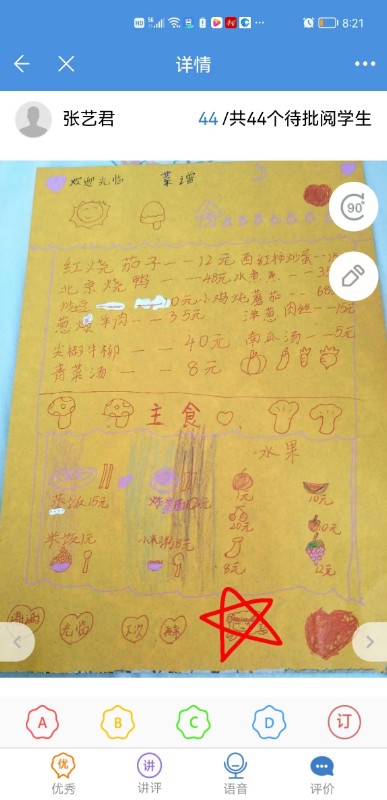 8:21
详情
张艺君
44 /共44个待批阅学生
欢迎光临 菜谱
90°
红烧茄子——12元 西红柿炒蛋
北京烧鸭——48元 水煮鱼
0元 小鸡炖蘑菇
葱爆羊肉——35元 洋葱肉丝——15元
尖椒牛柳——40元 南瓜汤——5元
青菜汤——8元
主食
水果
15元
1元
10元
20元
米饭1元
8元
12元
谢谢
光临
下次
A
B
C
D
订
优
讲
优秀
讲评
语音
评价